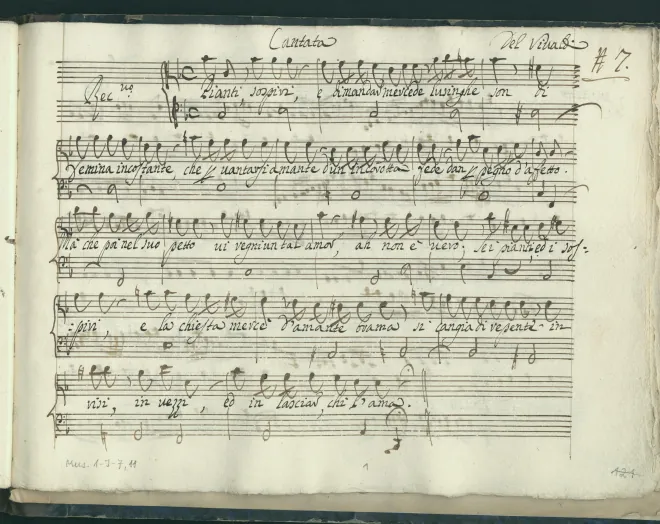 Cantata
Del Vivaldi
# 7.
Rec.vo
Pianti sospiri, e dimandar mercede lusinghe son di
femina incostante, che vantarsi amante d'un incolta fede dan pegno d'affetto.
Ma che pa nel suo petto vi regni un tal amor, ah non è vero; sei pianti, ed i sos=
=piri, e la chiesta mercè d'amante or ama si cangia di repente in
risi, in vezzi, ed in lasciar, chi l'ama.
Mus. 1-3-7, 11
1